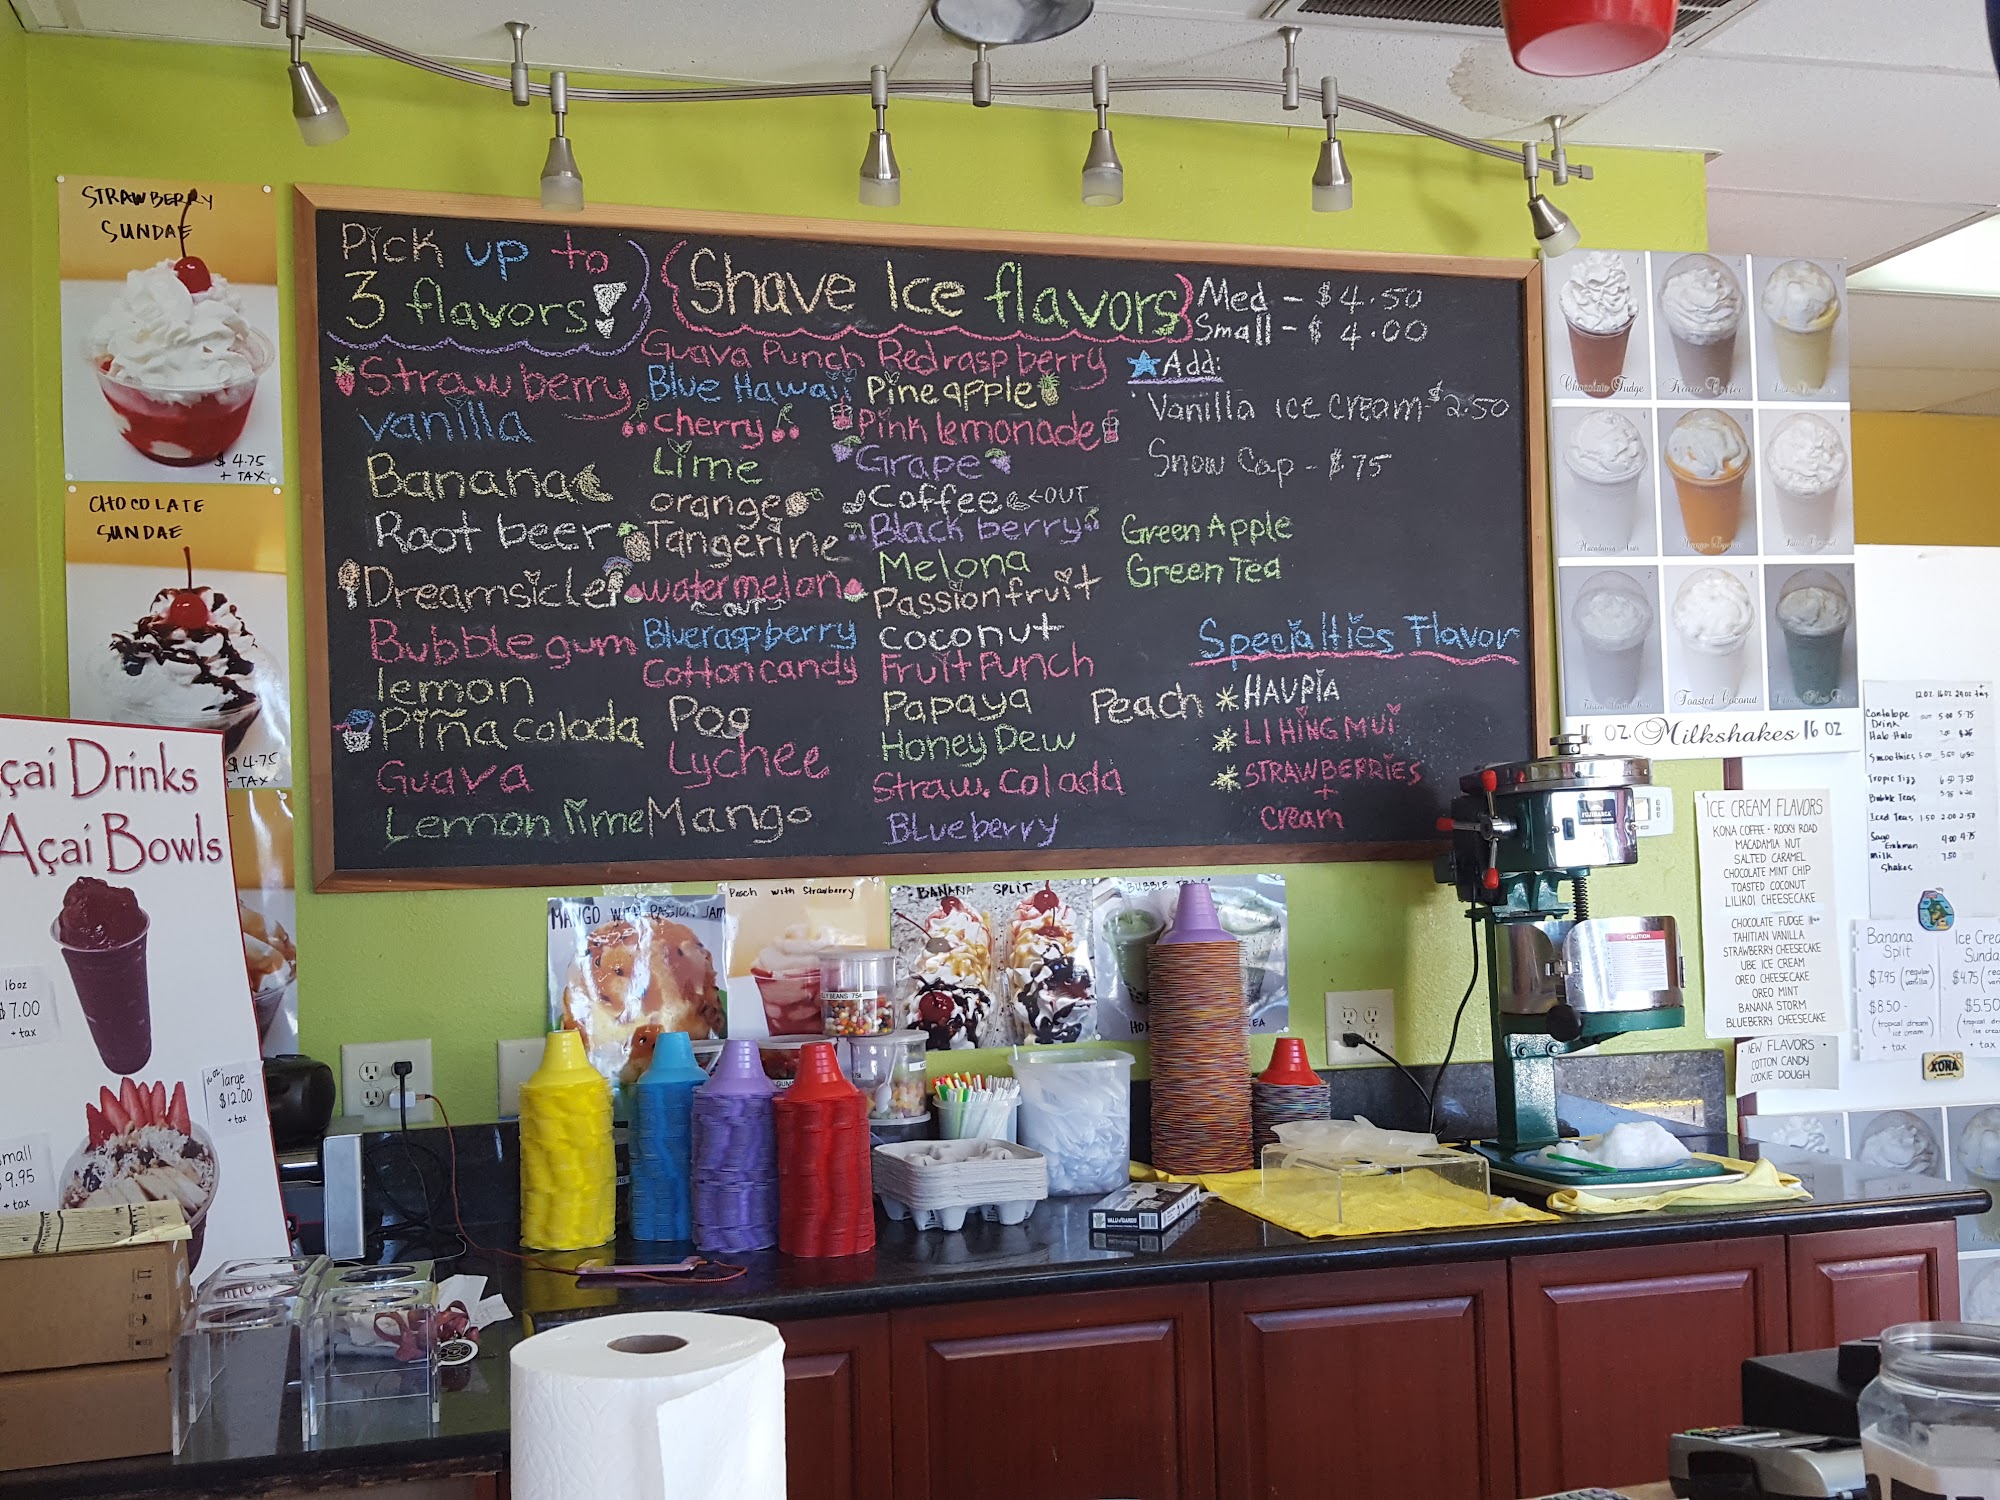 STRAWBERRY
SUNDAE
$4.75
+ TAX
CHOCOLATE
SUNDAE
$4.75
+ TAX
Pick up to
3 flavors!
Shave Ice flavors
Med - $4.50
Small - $4.00
Add:
Vanilla ice cream - $2.50
Snow Cap - $.75
Strawberry
Vanilla
Banana
Root beer
Dreamsicle
Bubble gum
lemon
Piña colada
Guava
Lemon lime
Guava Punch
Blue Hawaii
cherry
Lime
orange
Tangerine
watermelon
OUT
Blueraspberry
Cotton candy
Pog
Lychee
Mango
Red raspberry
Pineapple
Pink lemonade
Grape
Coffee ←OUT
Blackberry
Melona
Passion fruit
coconut
Fruit Punch
Papaya
Honey Dew
Straw. Colada
Blueberry
Green Apple
Green Tea
Peach
Specialties Flavor
HAUPIA
LI HING MUI
STRAWBERRIES
+
cream
çai Drinks
Açai Bowls
16oz
$7.00
+ tax
16 oz
large
$12.00
+ tax
mall
9.95
+ tax
MANGO WITH PASSION JAM
Peach with Strawberry
BANANA SPLIT
BUBBLE TEA
Chocolate Fudge
Kona Coffee
Toasted Coconut
OZ. Milkshakes 16 OZ.
ICE CREAM FLAVORS
KONA COFFEE • ROCKY ROAD
MACADAMIA NUT
SALTED CARAMEL
CHOCOLATE MINT CHIP
TOASTED COCONUT
LILIKOI CHEESECAKE
CHOCOLATE FUDGE
TAHITIAN VANILLA
STRAWBERRY CHEESECAKE
UBE ICE CREAM
OREO CHEESECAKE
OREO MINT
BANANA STORM
BLUEBERRY CHEESECAKE
• NEW FLAVORS •
COTTON CANDY
COOKIE DOUGH
12 OZ 16 OZ 24 OZ
Cantalope
Drink
5.00 5.75
Halo Halo
Smoothies
Tropic Fizz
Bubble Teas
Iced Teas 1.50 2.00 2.50
Sago
4.00 4.75
Milk
Shakes
7.50
Banana
Split
$7.95 (regular
vanilla)
$8.50 -
(tropical dream
ice cream)
+ tax
Ice Crea
Sunda
$4.75 (re
$5.50
(tropical dr
ice crea
+ tax
KONA
CAUTION
FUJIMARCA